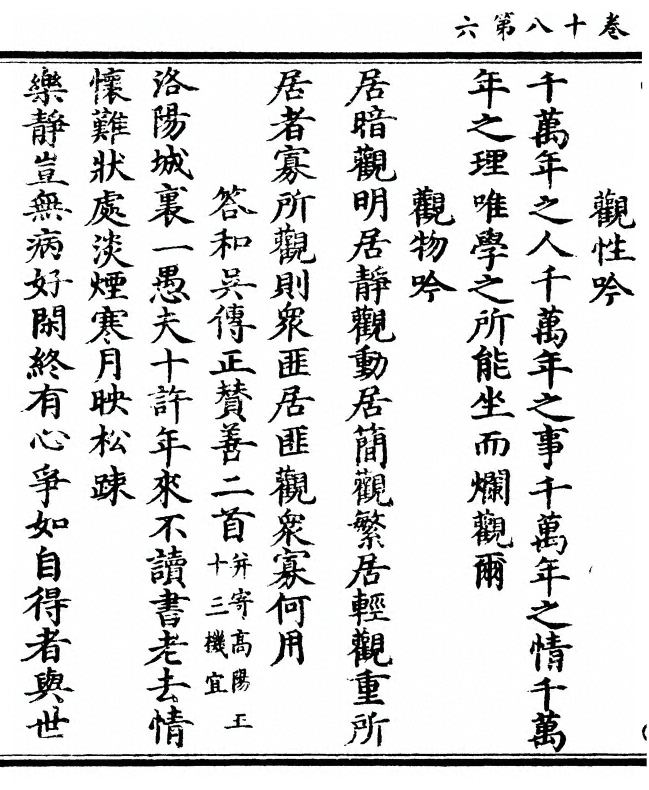 卷十八第六
觀性吟
千萬年之人千萬年之事千萬年之情千萬
年之理唯學之所能坐而爛觀爾
觀物吟
居暗觀明居靜觀動居簡觀繁居輕觀重所
居者寡所觀則衆匪居匪觀衆寡何用
答和吴傳正贊善二首
并寄高陽王
十三機宜
洛陽城裏一愚夫十許年來不讀書老去情
懷難狀處淡煙寒月映松踈
樂靜豈無病好閑終有心爭如自得者與世